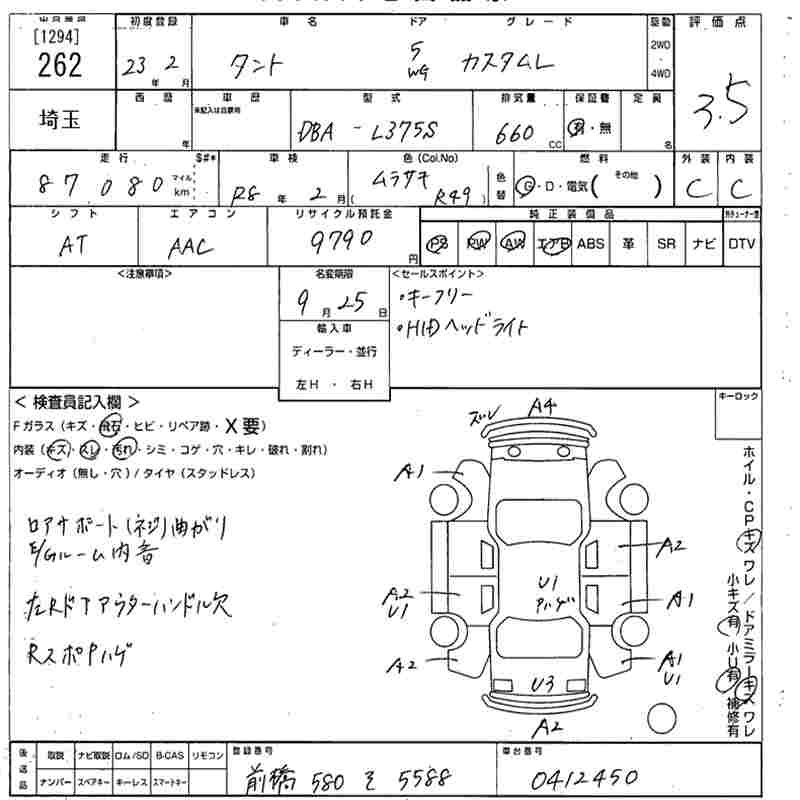 出品番号 初度登録 車名 ドア グレード 駆動 評価点
[1294]
262 23年 2月 タント 5 WG カスタムL 2WD・4WD 3.5
埼玉 西暦 年 車歴 未記入は自家用 型式 DBA - L375S 排気量 660 CC 保証書 有・無 定員 名
走行 87,080 マイル km S#* 車検 R8年 2月( 色(Col.No) ムラサキ R49) 色替 燃料 G・D・電気( その他 ) 外装 C 内装 C
シフト エアコン リサイクル預託金 純正装備品
AT AAC 9790円 PS PW AW エアB ABS 革 SR ナビ DTV
<注意事項> 名変期限 <セールスポイント>
9月25日 ・キーフリー
輸入車 ・HIDヘッドライト
ディーラー・並行
左H・右H
<検査員記入欄> キーロック
Fガラス(キズ・飛石・ヒビ・リペア跡・X要)
内装(キズ・スレ・汚れ・シミ・コゲ・穴・キレ・破れ・割れ)
オーディオ(無し・穴)/タイヤ(スタッドレス)
ロアサポート(ネジ)曲がり
E/Gルーム内音
左Rドア アウターハンドル欠
Rスポ Pハゲ
ズレ A4
A1 A1
A2
U1
Pハゲ
A2 U1 A1
A2 A1 U1
U3
A2
ホイル・CPキズワレ/ドアミラーキズワレ
小キズ有 小U有 補修有
後送品 取説 ナビ取説 ロム/SD B-CAS リモコン 登録番号 車台番号
ナンバー スペアキー キーレス スマートキー 前橋 580 そ 5588 0412450